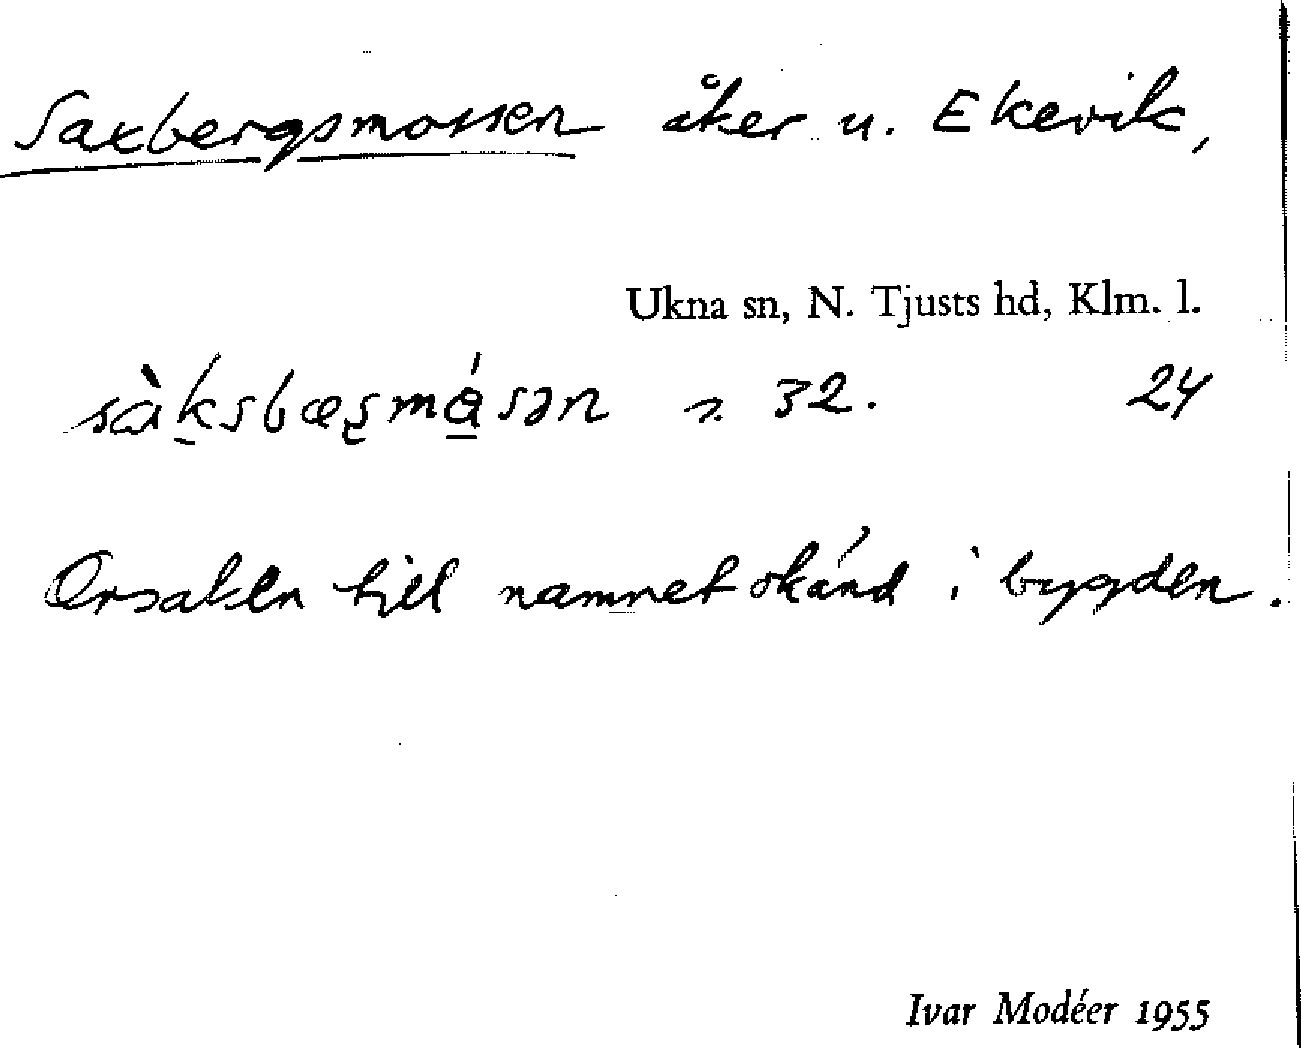 Saxbergsmossen åker u. Ekevik,
Ukna sn, N. Tjusts hd, Klm. l.
32. 24
Orsaken till namnet okänd i bygden.
Ivar Modéer 1955